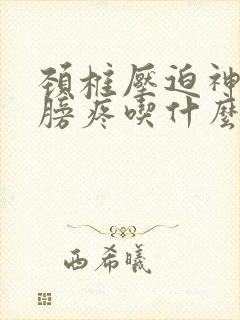 頸椎壓迫神
膀疼喫什麼
西希曦